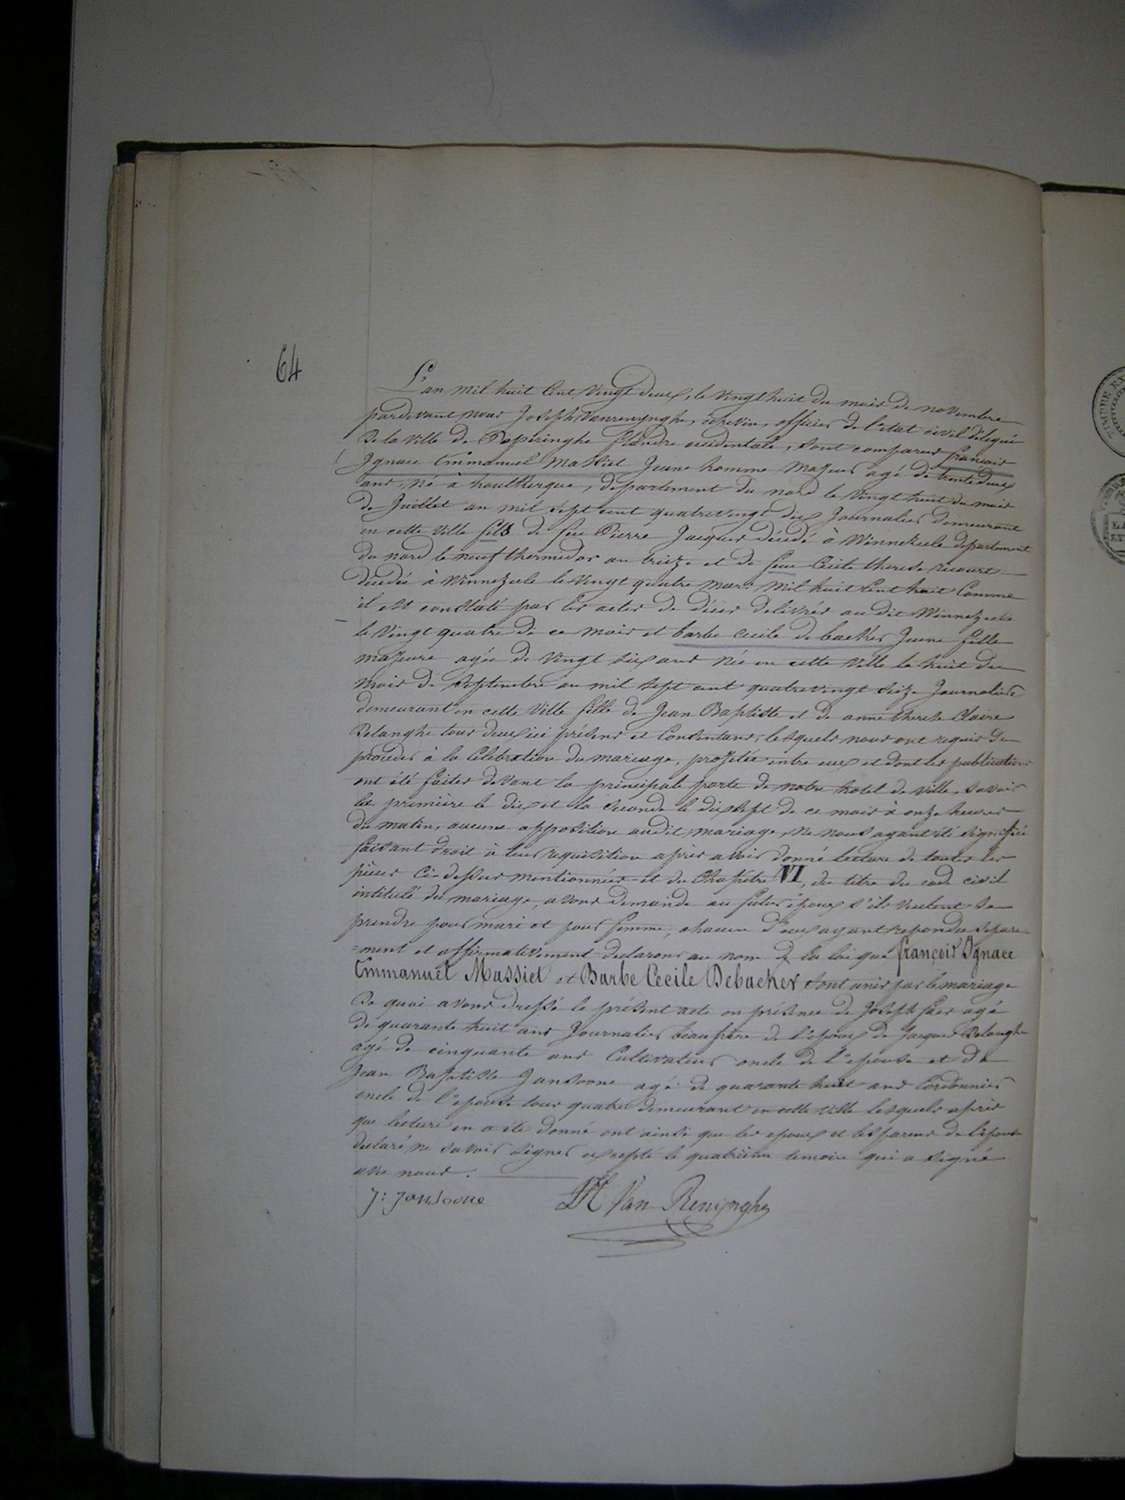 64
L'an mil huit Cent Vingt deux, le Vingt huit du mois de novembre
pardevant nous Joseph Vanrenynghe, échevin, officier de l'état civil délégué
De la Ville de Poperinghe flandre occidentale, sont comparus françois
Ignace Emmanuel Massiet Jeune homme Majeur agé de trente deux
ans, Né à houtkerque, département du nord le Vingt huit du mois
de Juillet an mil sept cent quatrevingt dix Journalier demeurant
en cette Ville fils de feu Pierre Jacques décédé à Winnezeele département
du nord le neuf thermidor an treize et de feue Cécile therese
décédée à Winnezeele le Vingt quatre mars mil huit Cent huit Comme
il est constaté par les actes de décès délivrés au dit Winnezeele
le Vingt quatre de ce mois et barbe cecile de backer Jeune fille
majeure agée de Vingt six ans Née en cette Ville le huit du
mois de Septembre an mil sept cent quatrevingt seize Journalière
demeurant en cette Ville fille de Jean Baptiste et de anne therese Claire
Delanghe tous deux ici présens et Consentans lesquels nous ont requis de
procéder à la Célébration du mariage, projetée entre eux et dont les publications
ont été faites devant la principale porte de notre hotel de Ville, savoir
la première le dix et la seconde le dix sept de ce mois à onze heures
du matin, aucune opposition audit mariage, Ne nous ayant été signifiée
faisant droit à leur requisition après avoir donné lecture de toutes les
pièces Ci-dessus mentionnées et du Chapitre VI, du titre du code civil
intitulé du mariage, avons demandé au futur époux s'ils veulent se
prendre pour mari et pour femme, chacun d'eux ayant répondu séparé-
=ment et affirmativement declarons au nom de la loi que françois Ignace
Emmanuel Massiet et Barbe Cecile Debacker sont unis par le mariage
De quoi avons dressé le présent acte en présence de Joseph agé
de quarante huit ans Journalier beaufrère de l'époux de Jacques Delanghe
agé de cinquante ans Cultivateur oncle de l'épouse et de
Jean Baptiste Jansoone agé de quarante huit ans Cordonnier
oncle de l'épouse tous quatre demeurant en cette Ville lesquels après
que lecture en a été donné ont ainsi que les epoux et les parens de l'épouse
declaré ne savoir signer excepté le quatrième temoin qui a signé
avec nous.
J: Jansoone
Van Renynghe